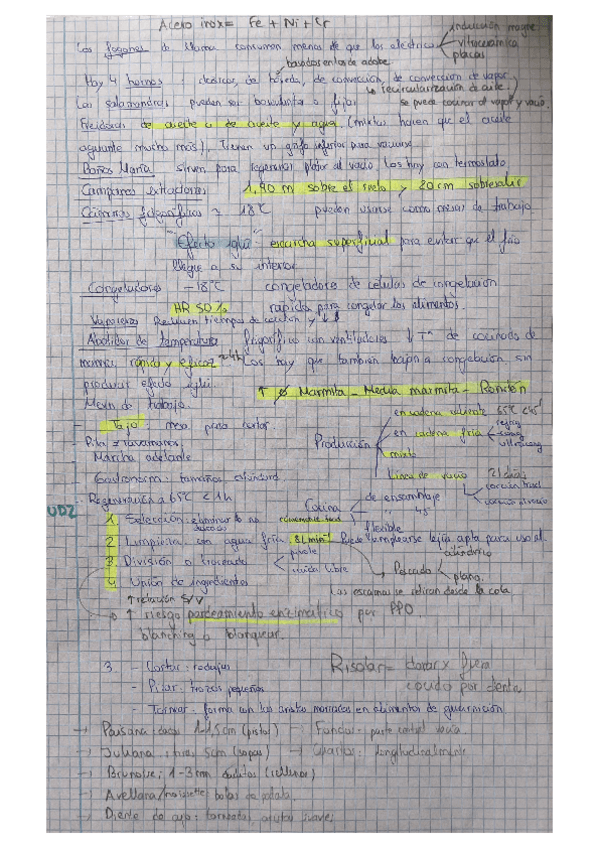 Acero inox = Fe + Ni + Cr
Los fogones de llama consumen menos de que los electricos
inducción magne.
vitrocerámica
placas
basados en los de adobe
Hay 4 hornos: clasicos, de bóveda, de convección, de convección de vapor
recircularización de aire
se puede cocinar al vapor y vacio
Las salamandras pueden ser basculantes o fijas
Freidoras de aceite u de aceite y agua. (mixtas hacen que el aceite
aguante mucho más), Tienen un grifo inferior para vaciarse
Baños María sirven para regenerar platos al vacio. Los hay con termostato
Campanas extractoras 1,90 m sobre el suelo y 20 cm sobresalir
Cámaras frigoríficas 18°C pueden usarse como mesas de trabajo
"Efecto iglú" escarcha superficial para evitar que el frio
llegue a su interior
Congeladores -18°C congeladores de células de congelación
HR 50% rapida para congelar los alimentos.
Vaporeras Reducen tiempos de cocción y ↓↓
Abatidor de temperatura frigorífico con ventiladores ↓ Tª de cocinados de
manera rápida y eficaz Los hay que también bajan a congelación sin
producir efecto iglú.
↑ Ø Marmita - Media marmita - Rondón
Mesa de trabajo
- Tajo - mesa para cortar.
- Pila ≠ lavamanos
Marcha adelante
Gastronorm: tamaños estándard
Regeneración a 65°C < 1h
Producción
en cadena caliente 65°C
en cadena fria
mixto
Linea de vacio 21 dias
Cocina
de ensamblaje
" 45"
flexible
UD2
1. Selección: eliminar lo no
2. Limpieza con agua fría 8L min⁻¹ Puede emplearse lejía apta para uso al.
3. División o troceado
cuida libre
Pescado
cilíndrico
plano.
4. Unión de ingredientes
Las escamas se retiran desde la cola
↑ relación S/V
↑ riesgo pardeamiento enzimatico por PPO
blanching o blanquear.
3 - Cortar: rodajas
- Picar: trozos pequeños
- Tornear: forma con las aristas marcadas en alimentos de guarnición
Risolar = dorar x fuera
crudo por dentro
→ Paisana: dados 1-1,5cm (pisto)
→ Juliana: tiras 5cm (sopas)
→ Brunoise: 1-3mm daditos (rellenos)
→ Avellana/noisette: bolas de patata.
→ Diente de ajo: torneada, aristas suaves
→ Fondos: parte central vacia.
→ Cuartos: longitudinalmente